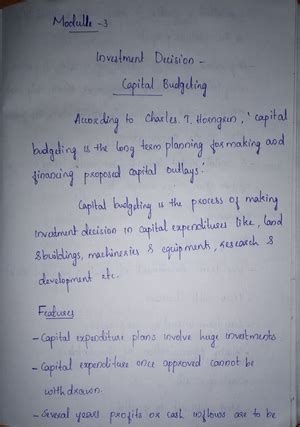 Module - 3
Investment Decision -
Capital Budgeting
According to Charles. T. Horngren, 'capital
budgeting is the long term planning for making and
financing proposed capital outlays.'
Capital budgeting is the process of making
investment decision in capital expenditures like, land
& buildings, machineries & equipments, research &
development etc.
Features
- Capital expenditure plans involve huge investments
- Capital expenditure once approved cannot be
withdrawn.
- Several years profits or cash inflows are to be